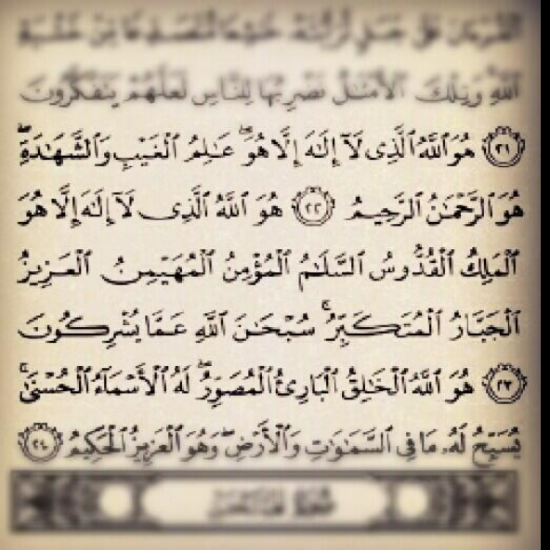 القرءان على جبل لرأيته خشعا متصدعا من خشية
الله وتلك الأمثل نضربها للناس لعلهم يتفكرون
٢١ هُوَ ٱللَّهُ ٱلَّذِى لَآ إِلَـٰهَ إِلَّا هُوَ ۖ عَـٰلِمُ ٱلْغَيْبِ وَٱلشَّهَـٰدَةِ ۖ
هُوَ ٱلرَّحْمَـٰنُ ٱلرَّحِيمُ ٢٢ هُوَ ٱللَّهُ ٱلَّذِى لَآ إِلَـٰهَ إِلَّا هُوَ
ٱلْمَلِكُ ٱلْقُدُّوسُ ٱلسَّلَـٰمُ ٱلْمُؤْمِنُ ٱلْمُهَيْمِنُ ٱلْعَزِيزُ
ٱلْجَبَّارُ ٱلْمُتَكَبِّرُ ۚ سُبْحَـٰنَ ٱللَّهِ عَمَّا يُشْرِكُونَ
٢٣ هُوَ ٱللَّهُ ٱلْخَـٰلِقُ ٱلْبَارِئُ ٱلْمُصَوِّرُ ۖ لَهُ ٱلْأَسْمَآءُ ٱلْحُسْنَىٰ ۚ
يُسَبِّحُ لَهُۥ مَا فِى ٱلسَّمَـٰوَٰتِ وَٱلْأَرْضِ ۖ وَهُوَ ٱلْعَزِيزُ ٱلْحَكِيمُ ٢٤